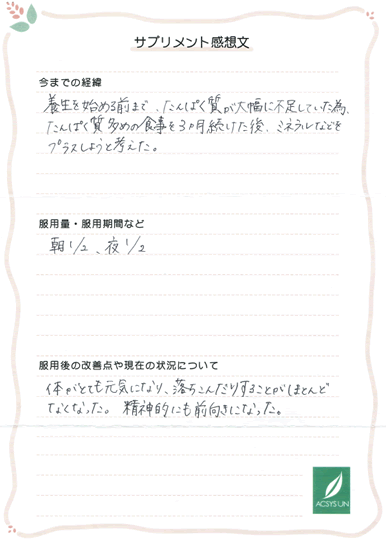 サプリメント感想文
今までの経緯
養生を始める前まで、たんぱく質が大幅に不足していた為、
たんぱく質多めの食事を3ヵ月続けた後、ミネラルなどを
プラスしようと考えた。
服用量・服用期間など
朝1/2、夜1/2
服用後の改善点や現在の状況について
体がとても元気になり、落ちこんだりすることがほとんど
なくなった。精神的にも前向きになった。
ACSYSUN